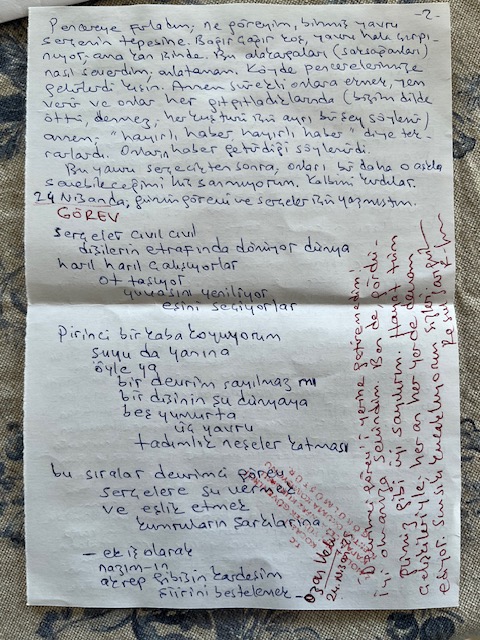 -2-
Pencereye fırladım, ne göreyim, binmiş yavru
serçenin tepesine. Bağır çağır koş, yavru hala çırpı-
nıyor, ama kan içinde. Bu alakargaları (saksağanları)
nasıl severdim, anlatamam. Köyde pencerelerimize
gelirlerdi kışın. Annem sürekli onlara ekmek, yem
verir ve onlar her gıtgıtladıklarında (bizim dilde
öttü, denmez, her kuş türü için ayrı bir şey söylenir)
annem, "hayırlı haber, hayırlı haber" diye tek-
rarlardı. Onların haber getirdiği söylenirdi.
Bu yavru serçecikten sonra, onları bir daha o aşkla
sevebileceğimi hiç sanmıyorum. Kalbimi kırdılar.
24 Nisanda, günün görevi ve serçeler için yazmıştım.
GÖREV
serçeler cıvıl cıvıl
dişilerin etrafında dönüyor dünya
harıl harıl çalışıyorlar
ot taşıyor
yuvasını yeniliyor
eşini seçiyorlar
Pirinci bir kaba koyuyorum
suyu da yanına
öyle ya
bir devrim sayılmaz mı
bir dişinin şu dünyaya
beş yumurta
üç yavru
tadımlık neşeler katması
bu sıralar devrimci görev
serçelere su vermek
ve eşlik etmek
kumruların şarkılarına
- ek iş olarak
nazım-ın
akrep gibisin kardeşim
şiirini bestelemek -
24 Nisan
"Devrimci görev"i yerine getiremedim
iyi olmanıza sevindim. Ben de gördü-
ğünüz gibi iyi sayılırım. Hayat tüm
çelişkileriyle, her an her yerde devam
ediyor. Sımsıkı kucaklıyorum sizleri,